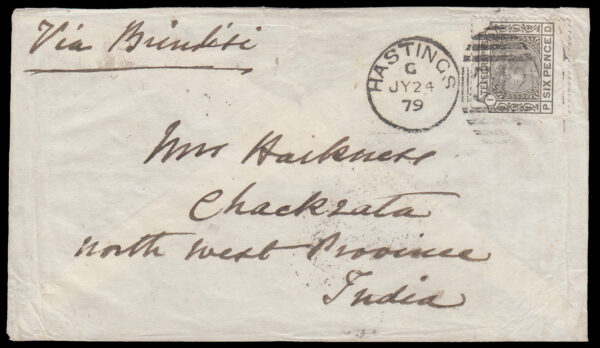 Via Brindisi
HASTINGS
G
JY 24
79
P SIX PENCE D
Mrs Harkness
Chackrata
North West Province
India